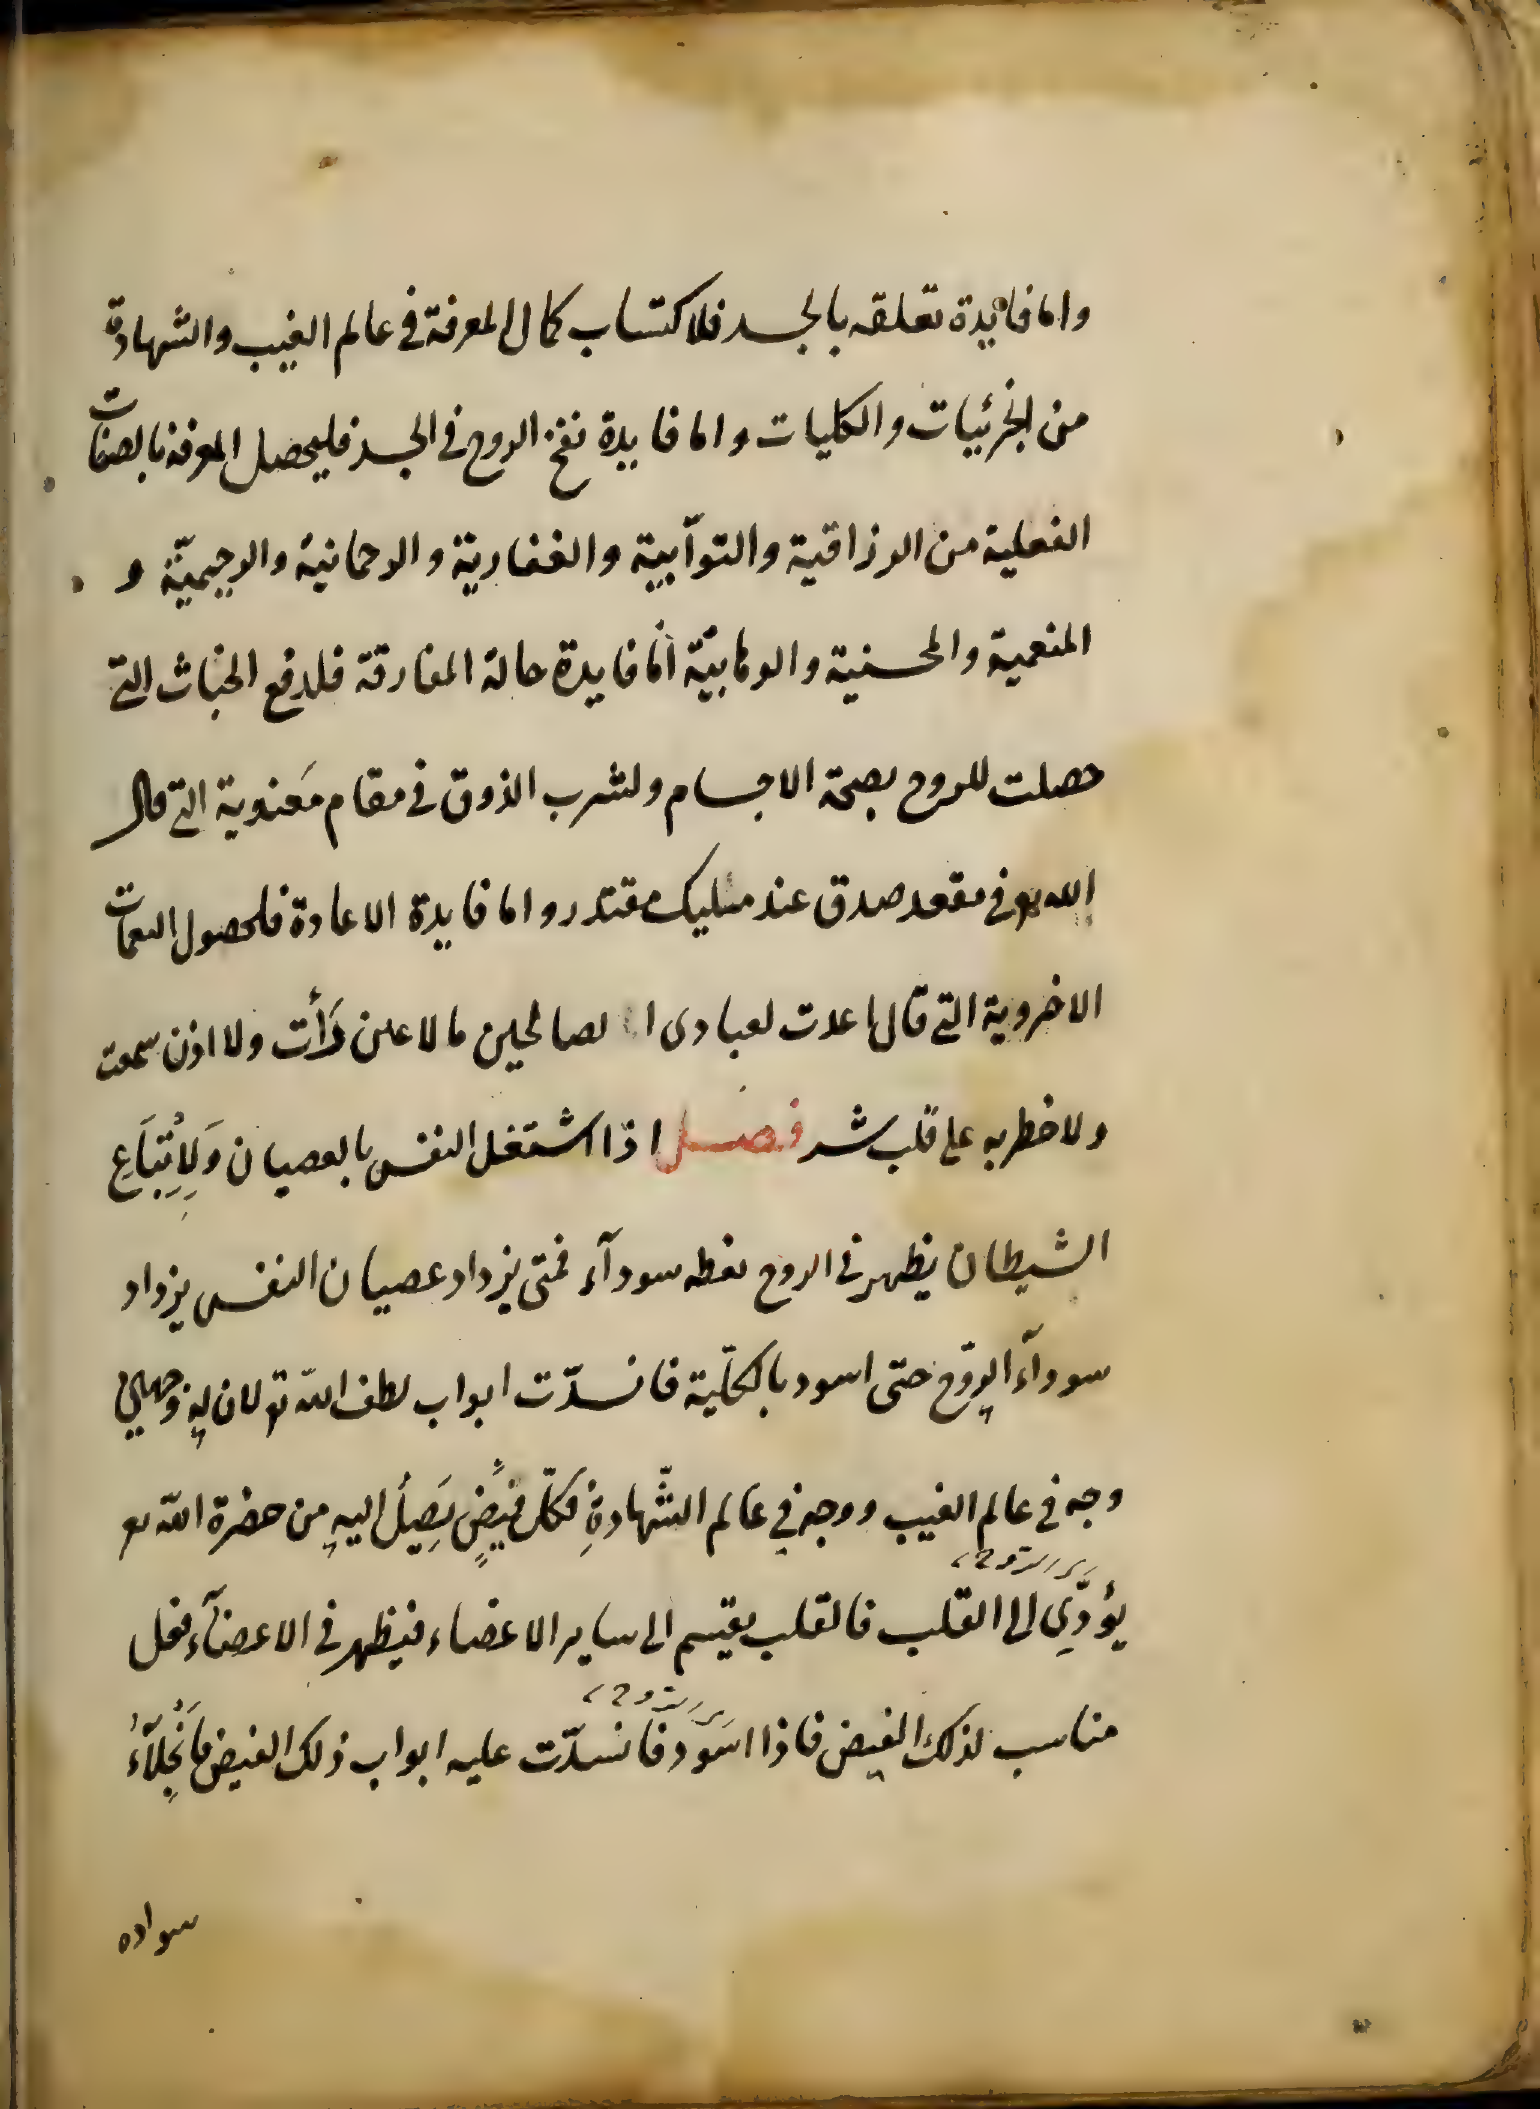 واما فايدة تعلقه بالجسد فلاكتساب كمال المعرفة في عالم الغيب والشهادة
من الجزئيات والكليات واما فايدة نفخ الروح في الجسد فليحصل المعرفة بالصفات
الفعلية من الرزاقية والتوّابية والغفارية والرحمانية والرحيميّة و
المنعمية والمحسنية والوهابيّة أما فايدة حالة المفارقة فلدفع الخباث التي
حصلت للروح بصحة الاجسام ولشرب الذوق في مقام مَعنوية التي قال
الله تع في مقعد صدق عند مليك مقتدر واما فايدة الاعادة فلحصول النعمات
الاخروية التي قال اعدت لعبادي الصالحين ما لا عين رَأت ولا اذن سمعت
ولا خطر به على قلب بشر فصل اذا اشتغل النفس بالعصيان وَلِاتِّبَاعِ
الشيطان يظهر في الروح نقطه سودآء فمتى يزداد عصيان النفس يزداد
سودآء الروح حتى اسود بالكلّية فانسدّت ابواب لطف الله تع لان له وجهين
وجه في عالم الغيب ووجه في عالم الشّهادةِ فكلّ فيضٍ يَصِلُ اليهِ من حضرة الله تع
يؤدِّي الى القلب فالقلب يقسم الى ساير الاعضاء فيظهر في الاعضآء فعل
مناسب لذلك الفيض فاذا اسَوّد فانسدّت عليه ابواب ذلك الفيض فانْجِلَآءُ
سواده